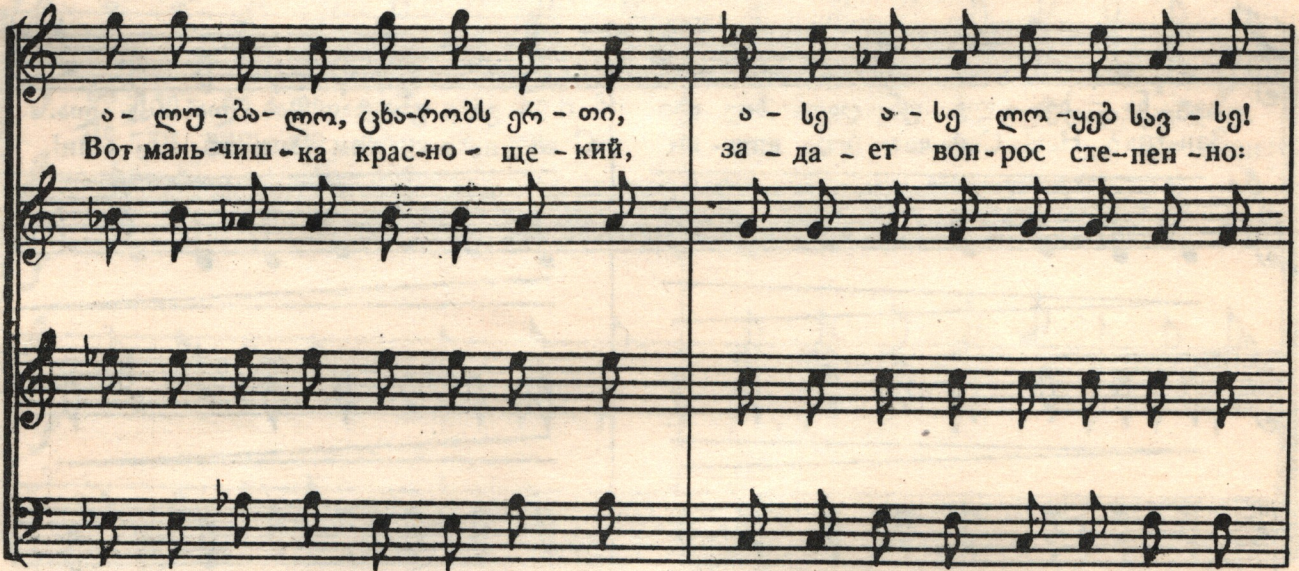 ა - ლუ - ბა - ლო, ცხა-რობს ერ - თი, ა - სე ა - სე ლო - ყებ სავ - სე!
Вот маль-чиш - ка крас-но - ще - кий, за - да - ет воп - рос сте-пен - но: